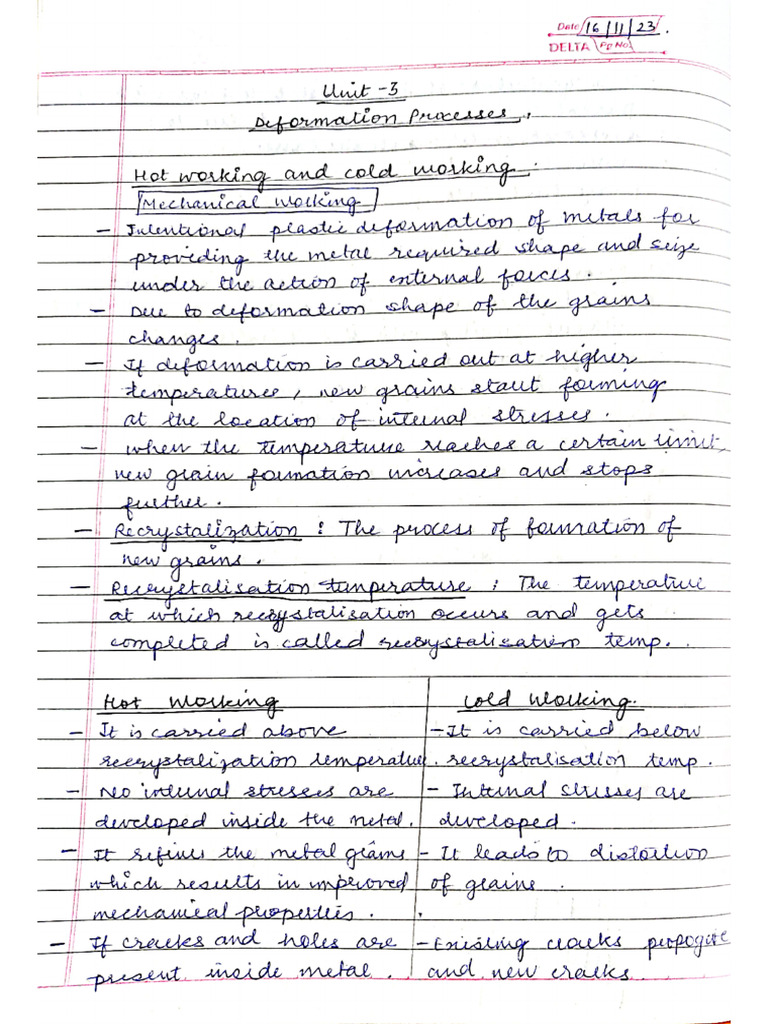 Date 16/11/23.
DELTA Pg No.
Unit -3
Deformation Processes.
Hot working and cold working.
Mechanical working
- Intentional plastic deformation of metals for
providing the metal required shape and seize
under the action of external forces.
- Due to deformation shape of the grains
changes.
- If deformation is carried out at higher
temperatures, new grains start forming
at the location of internal stresses.
- when the temperature reaches a certain limit,
new grain formation increases and stops
further.
- Recrystalization : The process of formation of
new grains.
- Recrystalisation temperature : The temperature
at which recrystalisation occurs and gets
completed is called recrystalisation temp.
Hot Working
Cold Working.
- It is carried above
recrystalization temperature.
- It is carried below
recrystalisation temp.
- No internal stresses are
developed inside the metal.
- Internal stresses are
developed.
- It refines the metal grains
which results in improved
mechanical properties.
- It leads to distortion
of grains.
- If cracks and holes are
present inside metal.
- Existing cracks propogate
and new cracks.